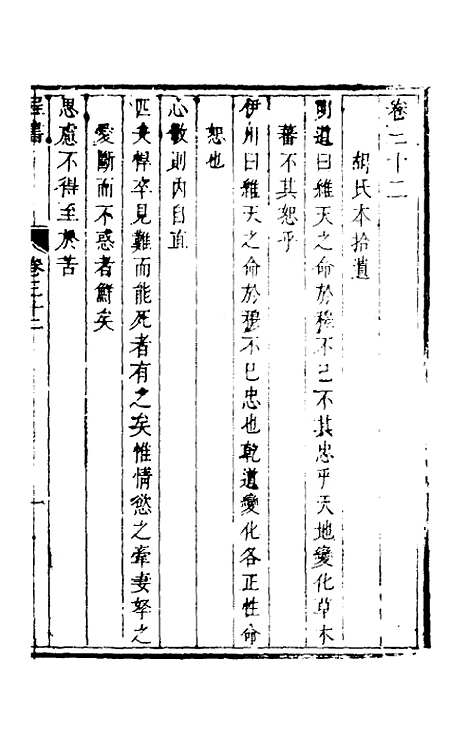 卷二十二
胡氏本拾遺
明道曰維天之命於穆不已不其忠乎天地變化草木
蕃不其恕乎
伊川曰維天之命於穆不已忠也乾道變化各正性命
恕也
心敬則內自直
匹夫悍卒見難而能死者有之矣惟情慾之牽妻孥之
愛斷而不惑者鮮矣
思慮不得至於苦
卷三十二
一